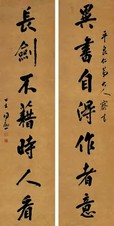 異書自得作者意
長劍不藉時人看